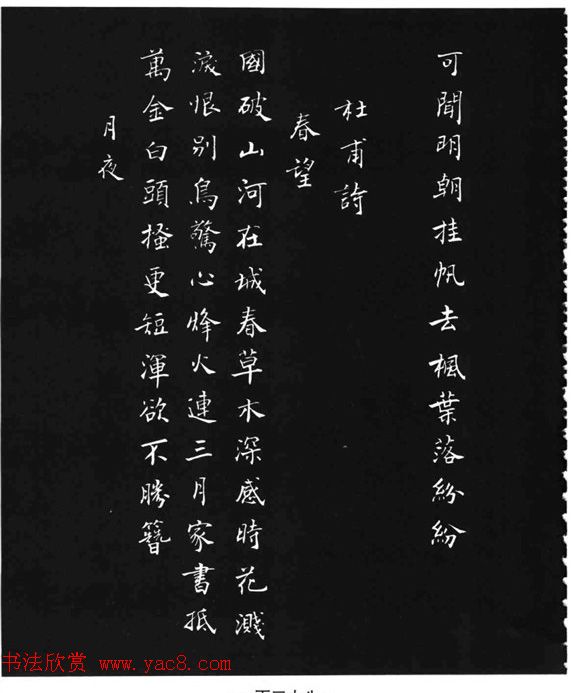 可聞明朝挂帆去楓葉落紛紛
杜甫詩
春望
國破山河在城春草木深感時花濺
淚恨別鳥驚心烽火連三月家書抵
萬金白頭搔更短渾欲不勝簪
月夜
书法欣赏 www.yac8.com